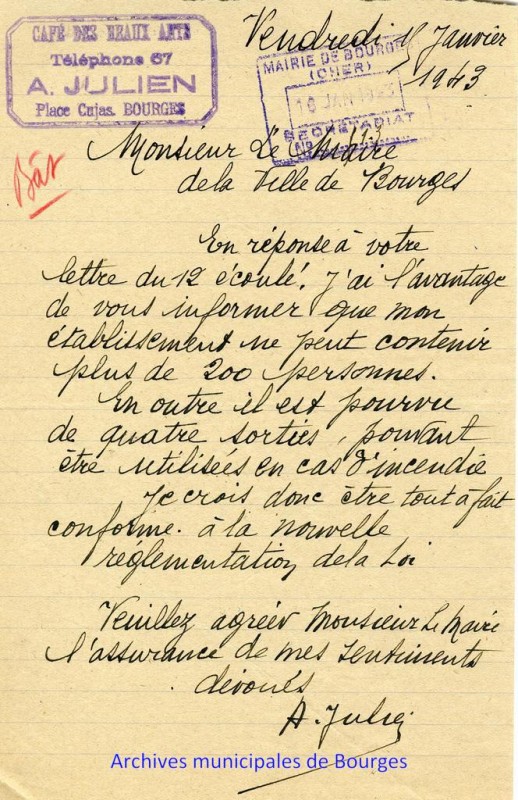 CAFÉ DES BEAUX ARTS
Téléphone 67
A. JULIEN
Place Cujas. BOURGES
Vendredi 15 Janvier
1943
MAIRIE DE BOURGES
(CHER)
JAN
SECRETARIAT
N°
Bât
Monsieur Le Maire
de la Ville de Bourges
En réponse à votre
lettre du 12 écoulé. j'ai l'avantage
de vous informer que mon
établissement ne peut contenir
plus de 200 personnes.
En outre il est pourvu
de quatre sorties, pouvant
être utilisées en cas d'incendie
Je crois donc être tout à fait
conforme. à la nouvelle
réglementation de la Loi
Veuillez agréer Monsieur Le Maire
l'assurance de mes sentiments
dévoués
A. Julien
Archives municipales de Bourges